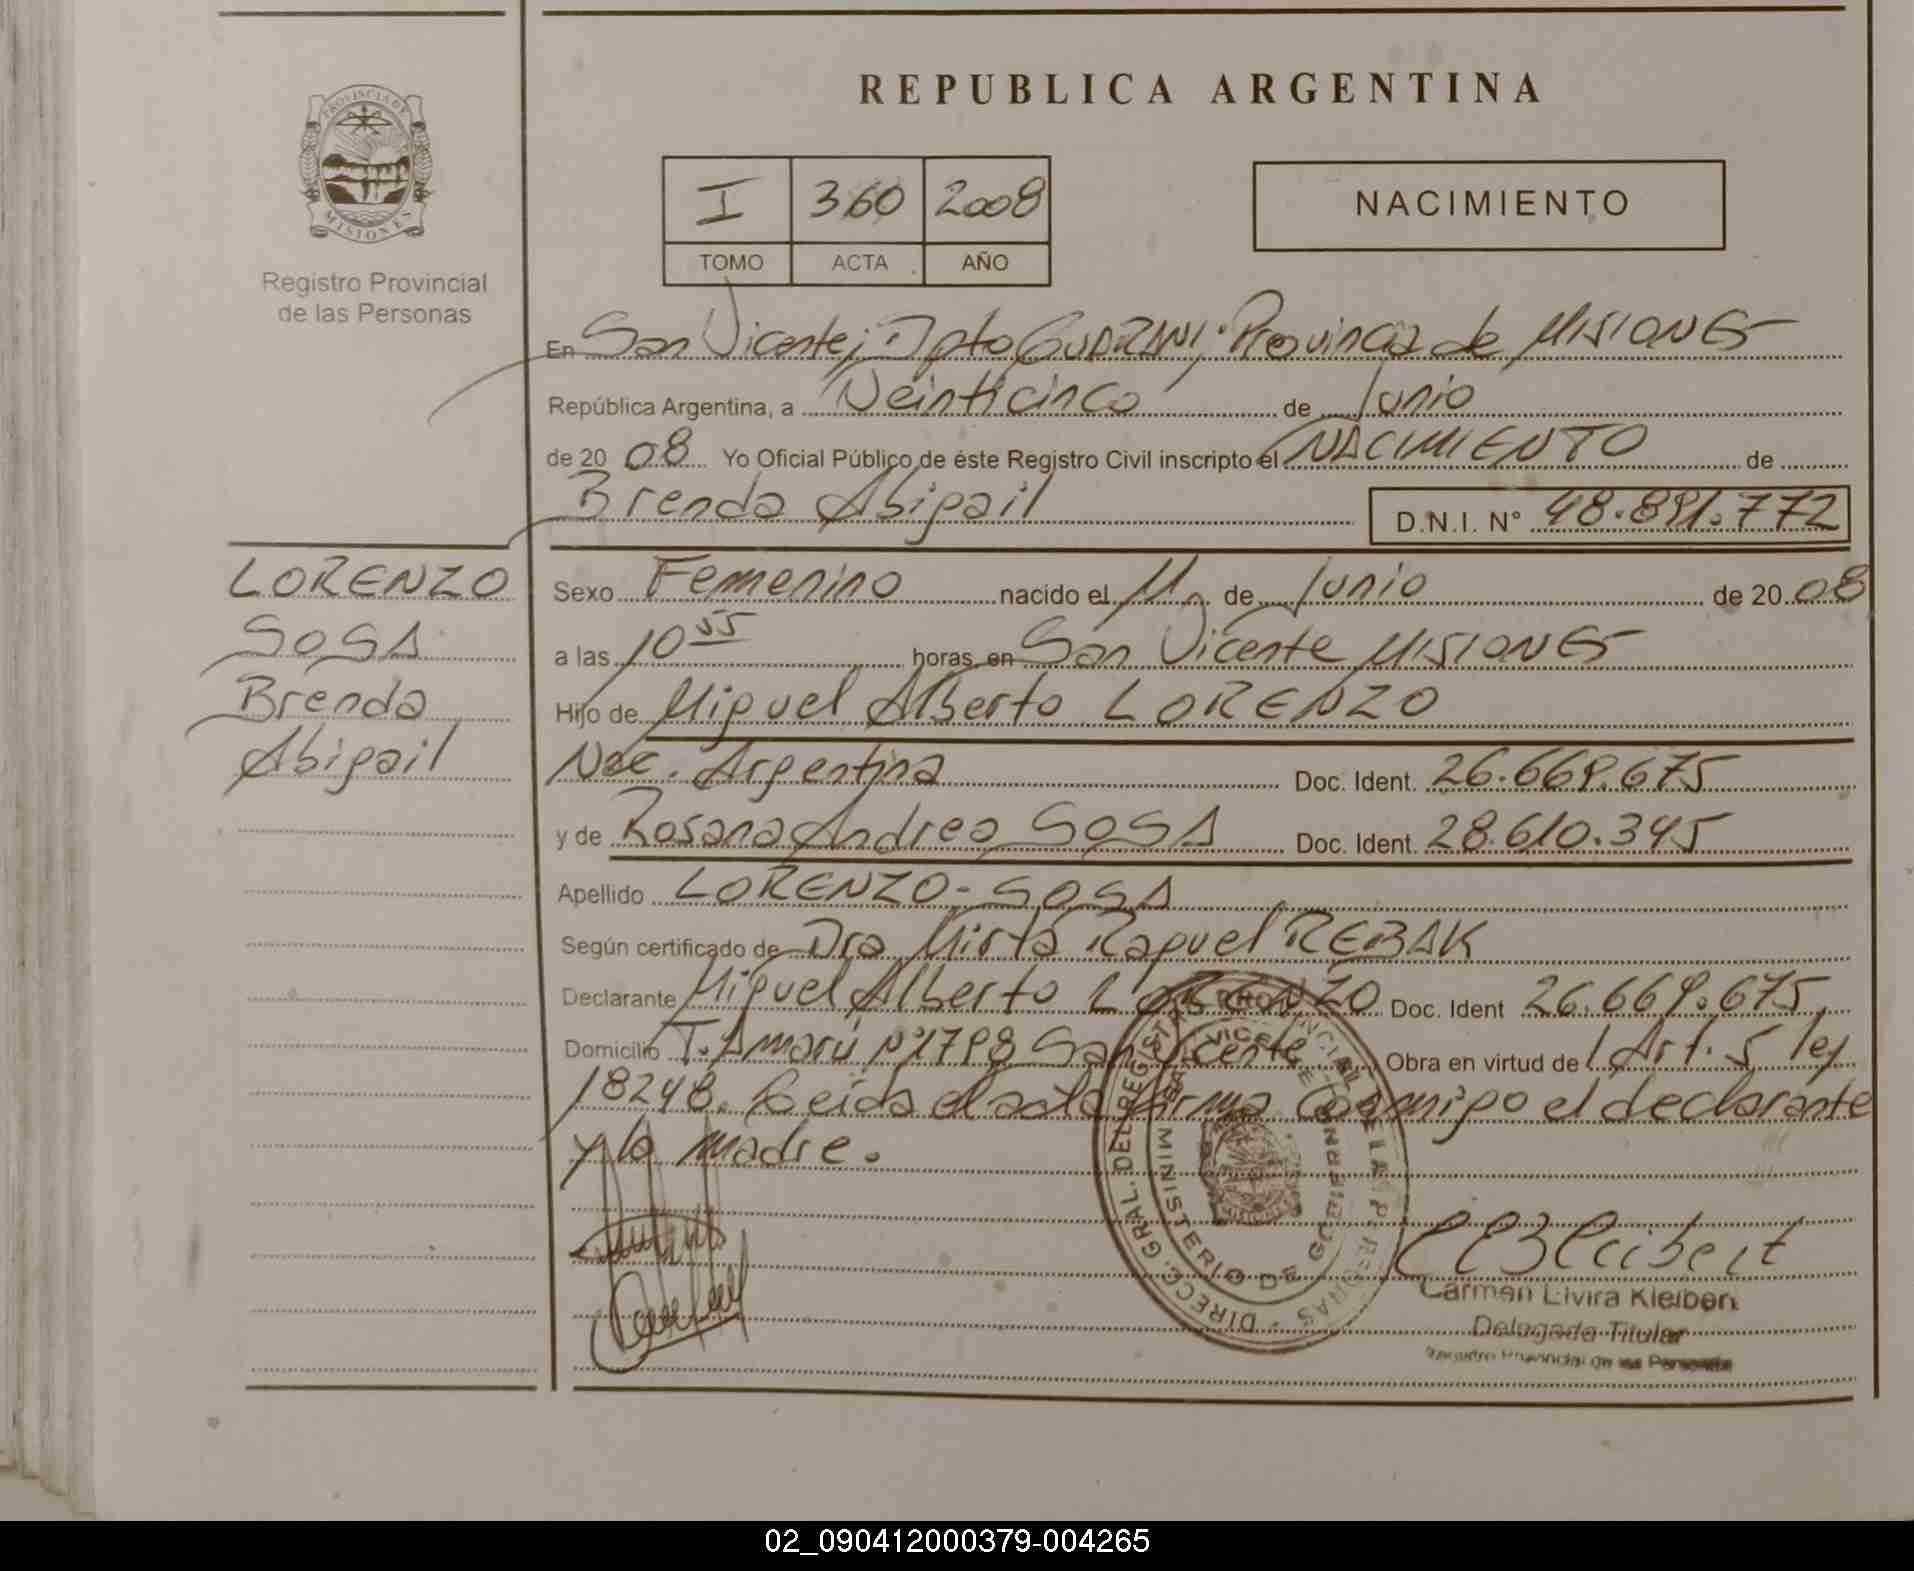 REPUBLICA ARGENTINA
PROVINCIA DE
MISIONES
Registro Provincial
de las Personas
I 360 2008
TOMO ACTA AÑO
NACIMIENTO
En San Vicente; Dpto GUARANI; Provincia de MISIONES
República Argentina, a Veinticinco de Junio
de 20 08 Yo Oficial Público de éste Registro Civil inscripto el NACIMIENTO de
Brenda Abigail D.N.I. N° 48.891.772
LORENZO
SOSA
Brenda
Abigail
Sexo Femenino nacido el 11 de Junio de 20 08
a las 10 55 horas, en San Vicente MISIONES
Hijo de Miguel Alberto LORENZO
Nac. Argentina Doc. Ident. 26.669.675
y de Rosana Andrea SOSA Doc. Ident. 28.610.345
Apellido LORENZO-SOSA
Según certificado de Dra Mirta Raquel REBAK
Declarante Miguel Alberto LORENZO Doc. Ident 26.669.675
Domicilio T. Amarú N°1798 San Vicente Obra en virtud de Art. 5 ley
18248. Leida el acta firma conmigo el declarante
y la madre.
DIRECC. GRAL. DEL REGISTRO PROVINCIAL DE LAS PERSONAS
SAN VICENTE
MINISTERIO DE GOBIERNO
Carmen Elvira Kleibert
Delegado Titular
Registro Provincial de las Personas
02_090412000379-004265